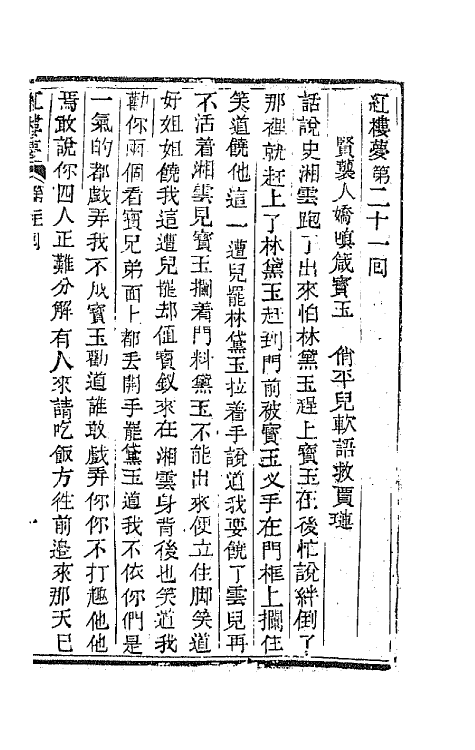 紅樓夢第二十一回
賢襲人嬌嗔箴寶玉　俏平兒軟語救賈璉
話說史湘雲跑了出來怕林黛玉趕上寶玉在後忙說絆倒了
那裡就赶上了林黛玉赶到門前被寶玉叉手在門框上攔住
笑道饒他這一遭兒罷林黛玉拉着手說道我要饒了雲兒再
不活着湘雲見寶玉攔着門料黛玉不能出來便立住脚笑道
好姐姐饒我這遭兒罷却値寶釵來在湘雲身背後也笑道我
勸你兩個看寶兄弟面上都丟開手罷黛玉道我不依你們是
一氣的都戲弄我不成寶玉勸道誰敢戲弄你你不打趣他他
焉敢說你四人正難分解有人來請吃飯方徃前邉來那天已
紅樓夢　第　囘　一